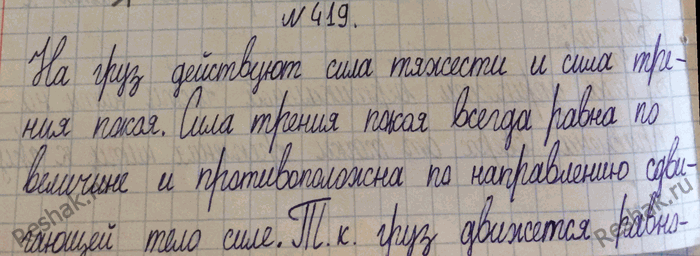 №419.
На груз действуют сила тяжести и сила тре-
ния покоя. Сила трения покоя всегда равна по
величине и противоположна по направлению сдви-
гающей тело силе. Т.к. груз движется равно-
Reshak.ru
Reshak.ru